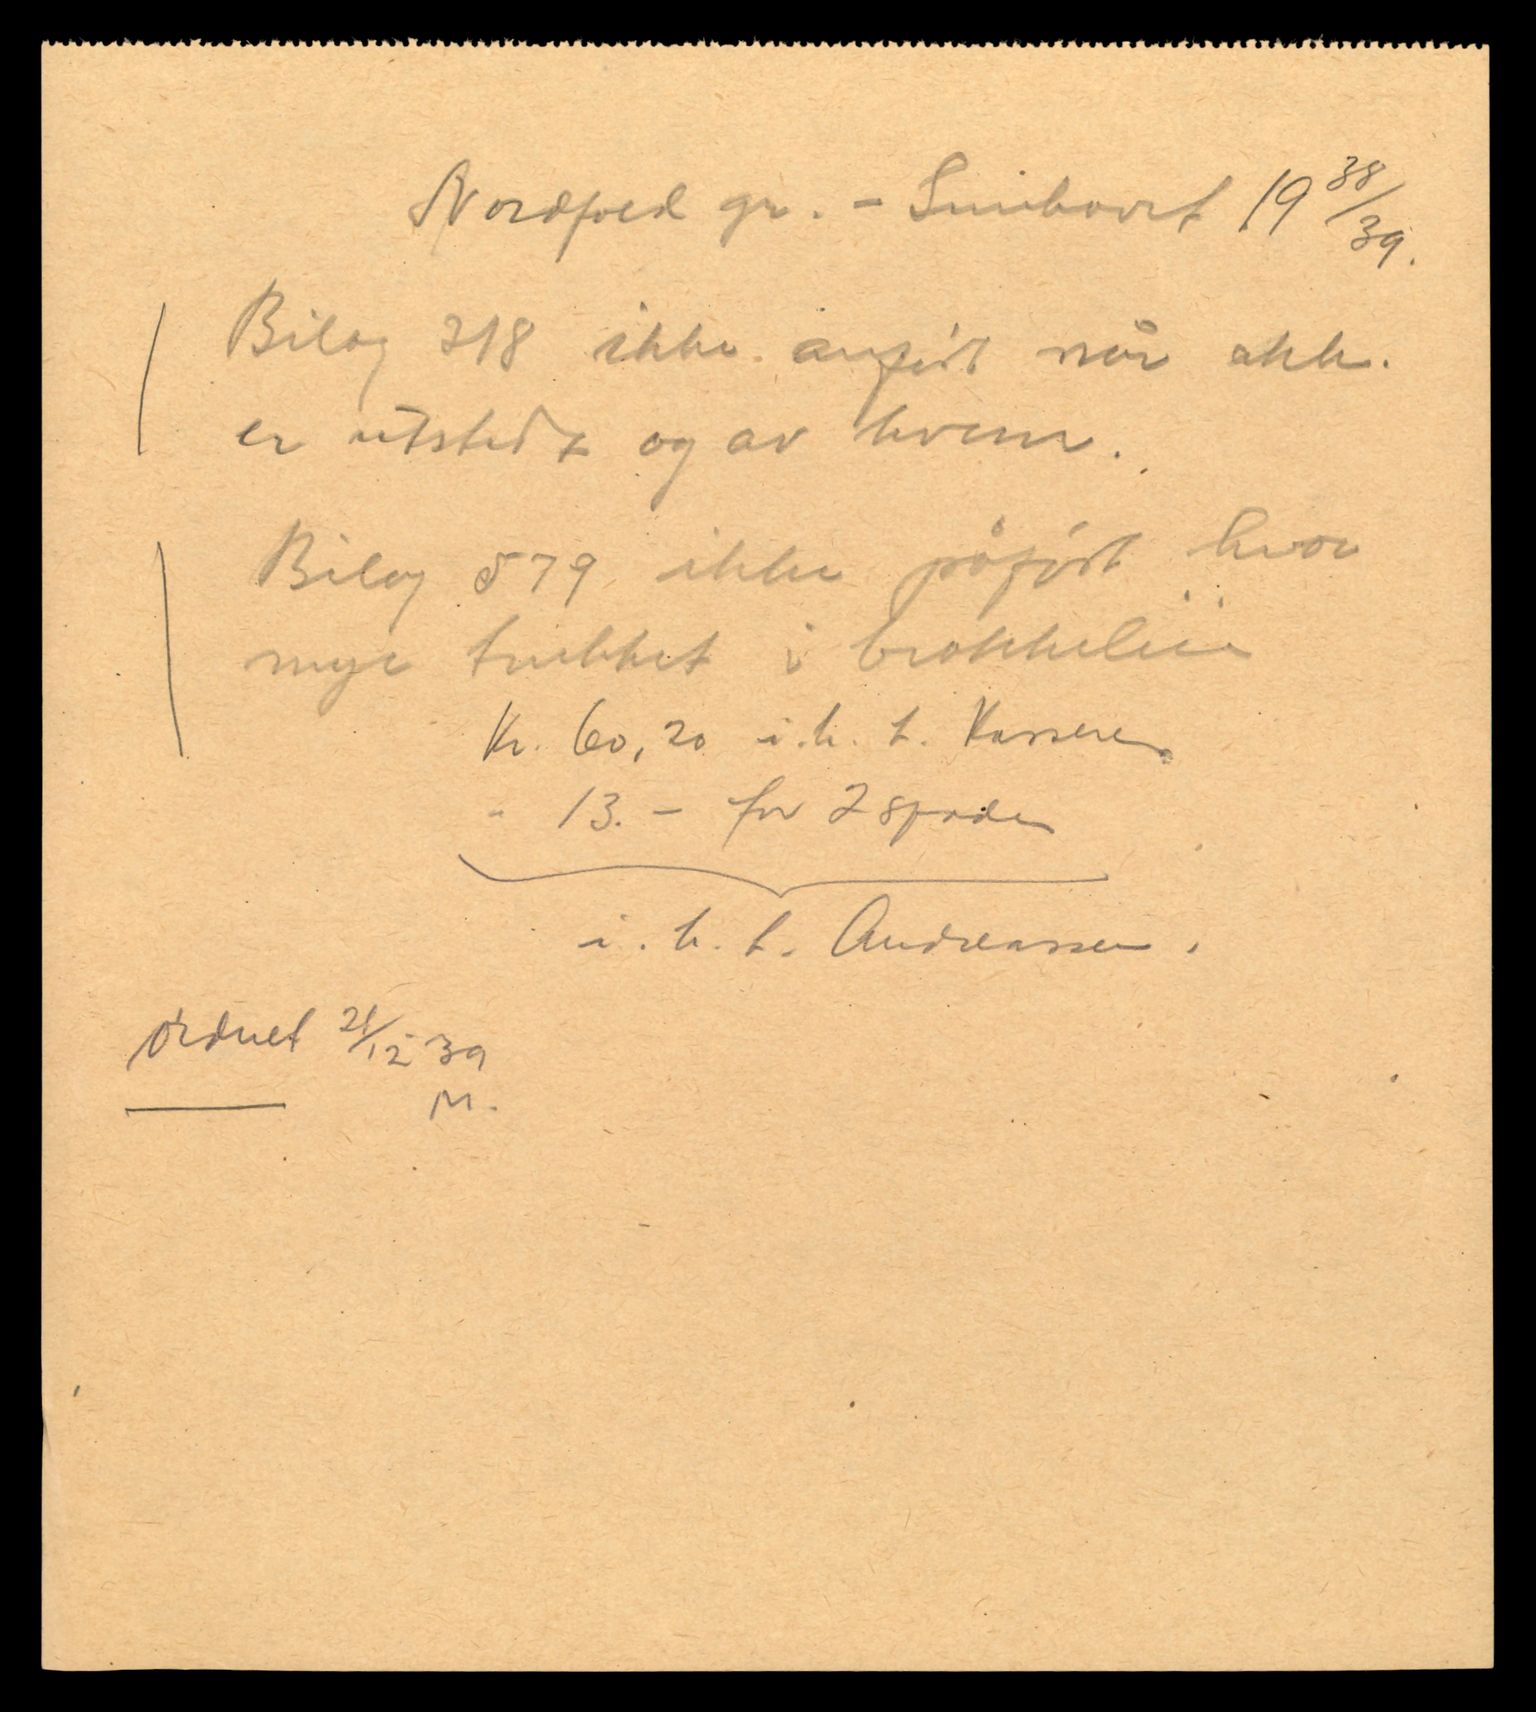 Nordfold gr. - 19 38/39.
Bilag 318 ikke anført når akk.
er utstedt og av hvem.
Bilag 579 ikke påført hvor
mye trukket i brakkeleie
Kr. 60,20 i.h.t. Kasserer
" 13.- for 2 spader
i.h.t. Andreassen.
Ordnet 21/12 39
M.